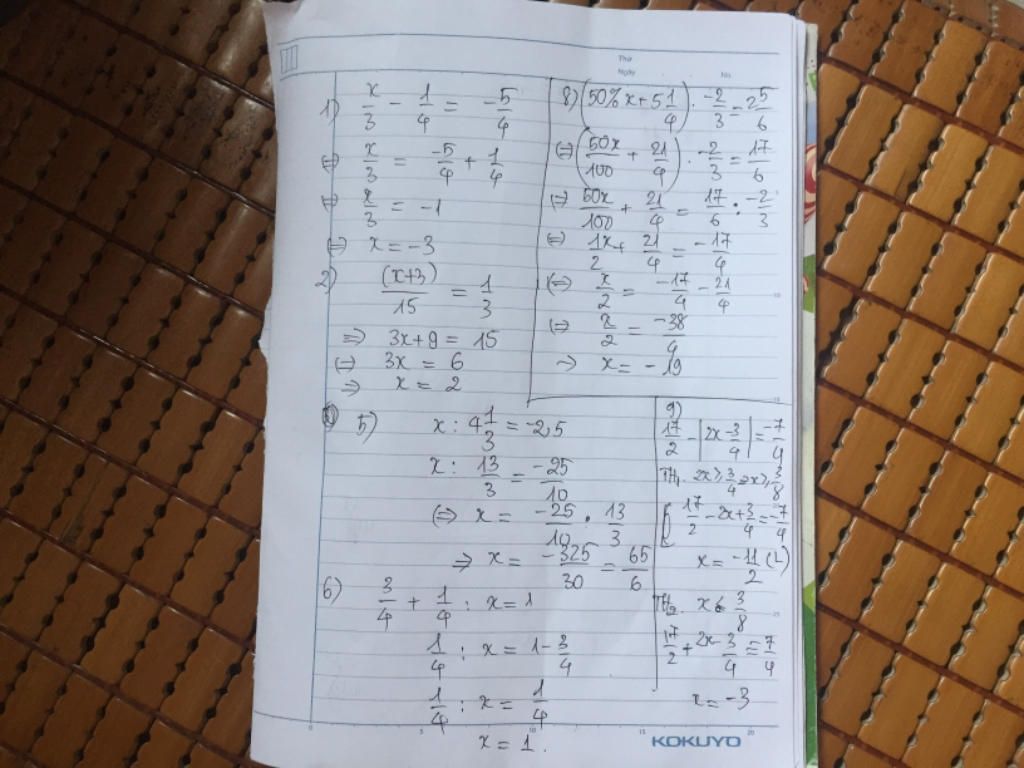 Thứ
Ngày No.
1) x/3 - 1/4 = -5/4
(=) x/3 = -5/4 + 1/4
(=) x/3 = -1
(=) x = -3
2) (x+3)/15 = 1/3
=> 3x+9 = 15
(=) 3x = 6
=> x = 2
8) (50% x + 5 1/4) . -2/3 = 2 5/6
(=) (50x/100 + 21/4) . -2/3 = 17/6
(=) 50x/100 + 21/4 = 17/6 : -2/3
(=) 1x/2 + 21/4 = -17/4
(=) x/2 = -17/4 - 21/4
(=) x/2 = -38/4
-> x = -19
5) x : 4 1/3 = -2,5
x : 13/3 = -25/10
(=) x = -25/10 . 13/3
=> x = -325/30 = 65/6
6) 3/4 + 1/4 : x = 1
1/4 : x = 1 - 3/4
1/4 : x = 1/4
x = 1.
9)
17/2 - |2x - 3/4| = -7/4
TH1. 2x ≥ 3/4 => x ≥ 3/8
17/2 - 2x + 3/4 = -7/4
x = -11/2 (L)
TH2. x < 3/8
17/2 + 2x - 3/4 = -7/4
x = -3
KOKUYO